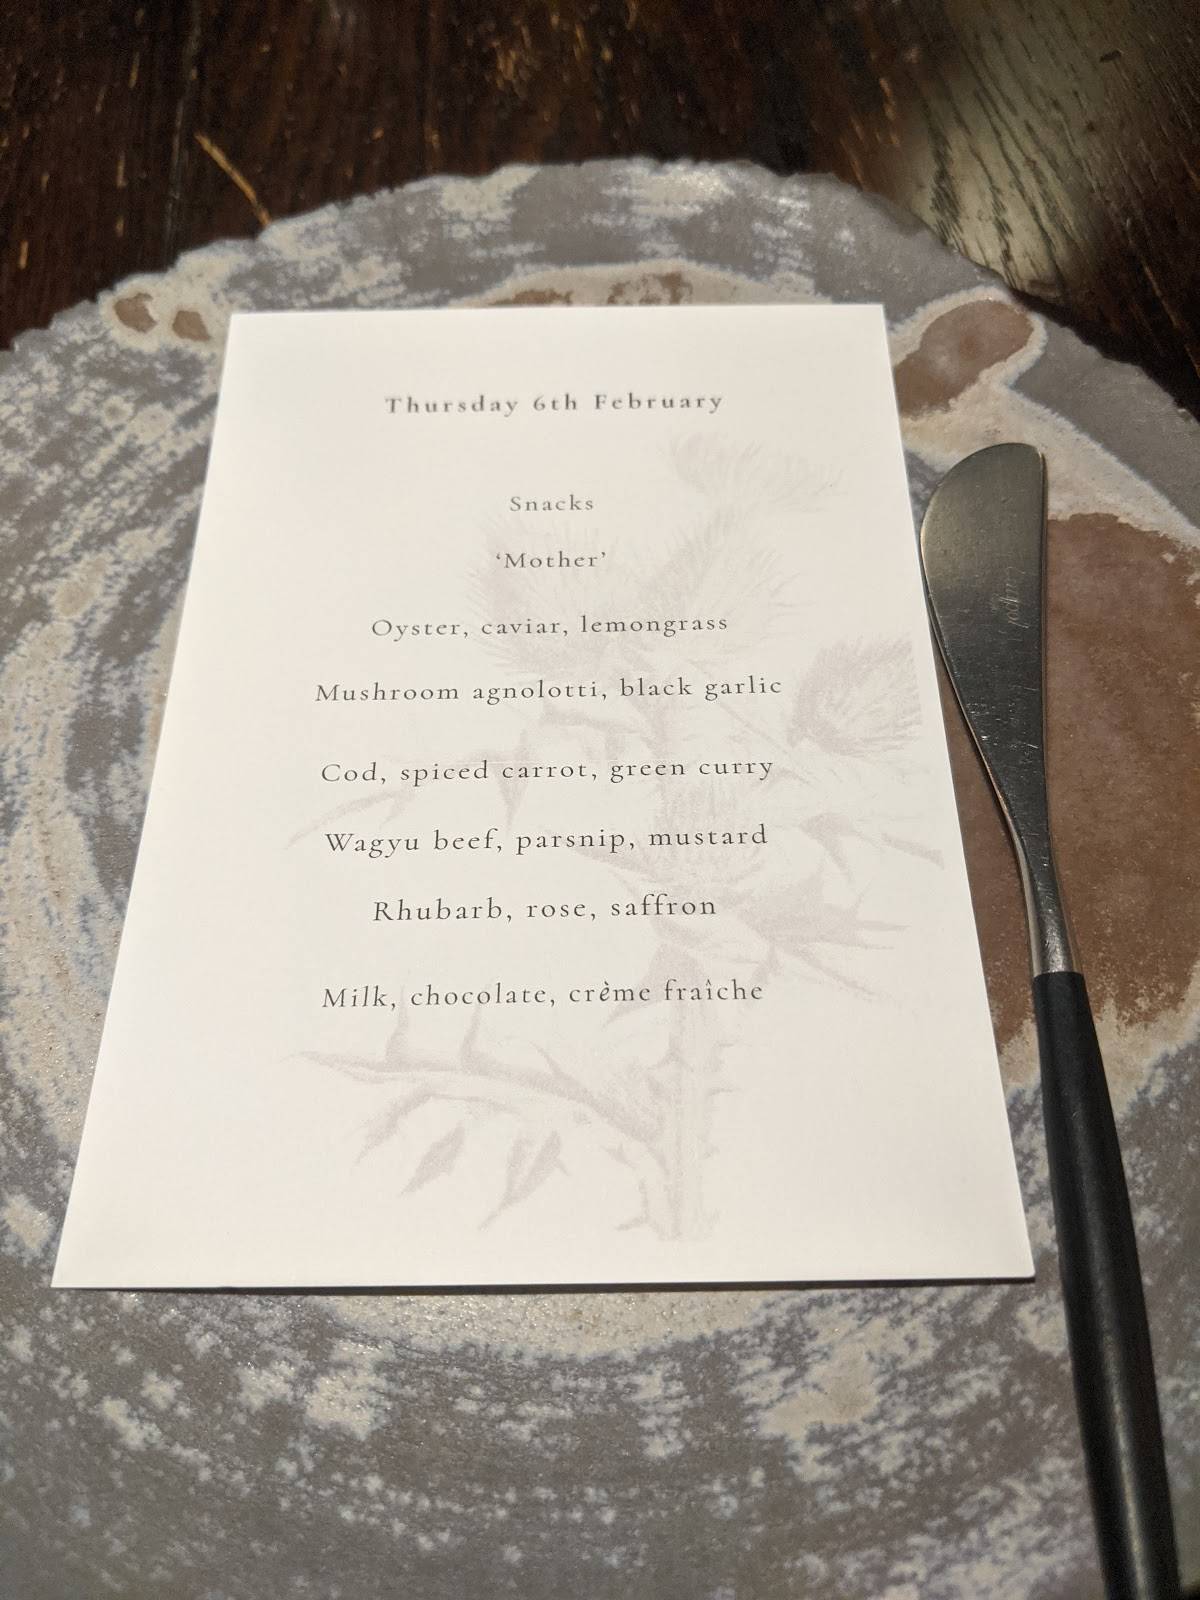 Thursday 6th February
Snacks
‘Mother’
Oyster, caviar, lemongrass
Mushroom agnolotti, black garlic
Cod, spiced carrot, green curry
Wagyu beef, parsnip, mustard
Rhubarb, rose, saffron
Milk, chocolate, crème fraîche